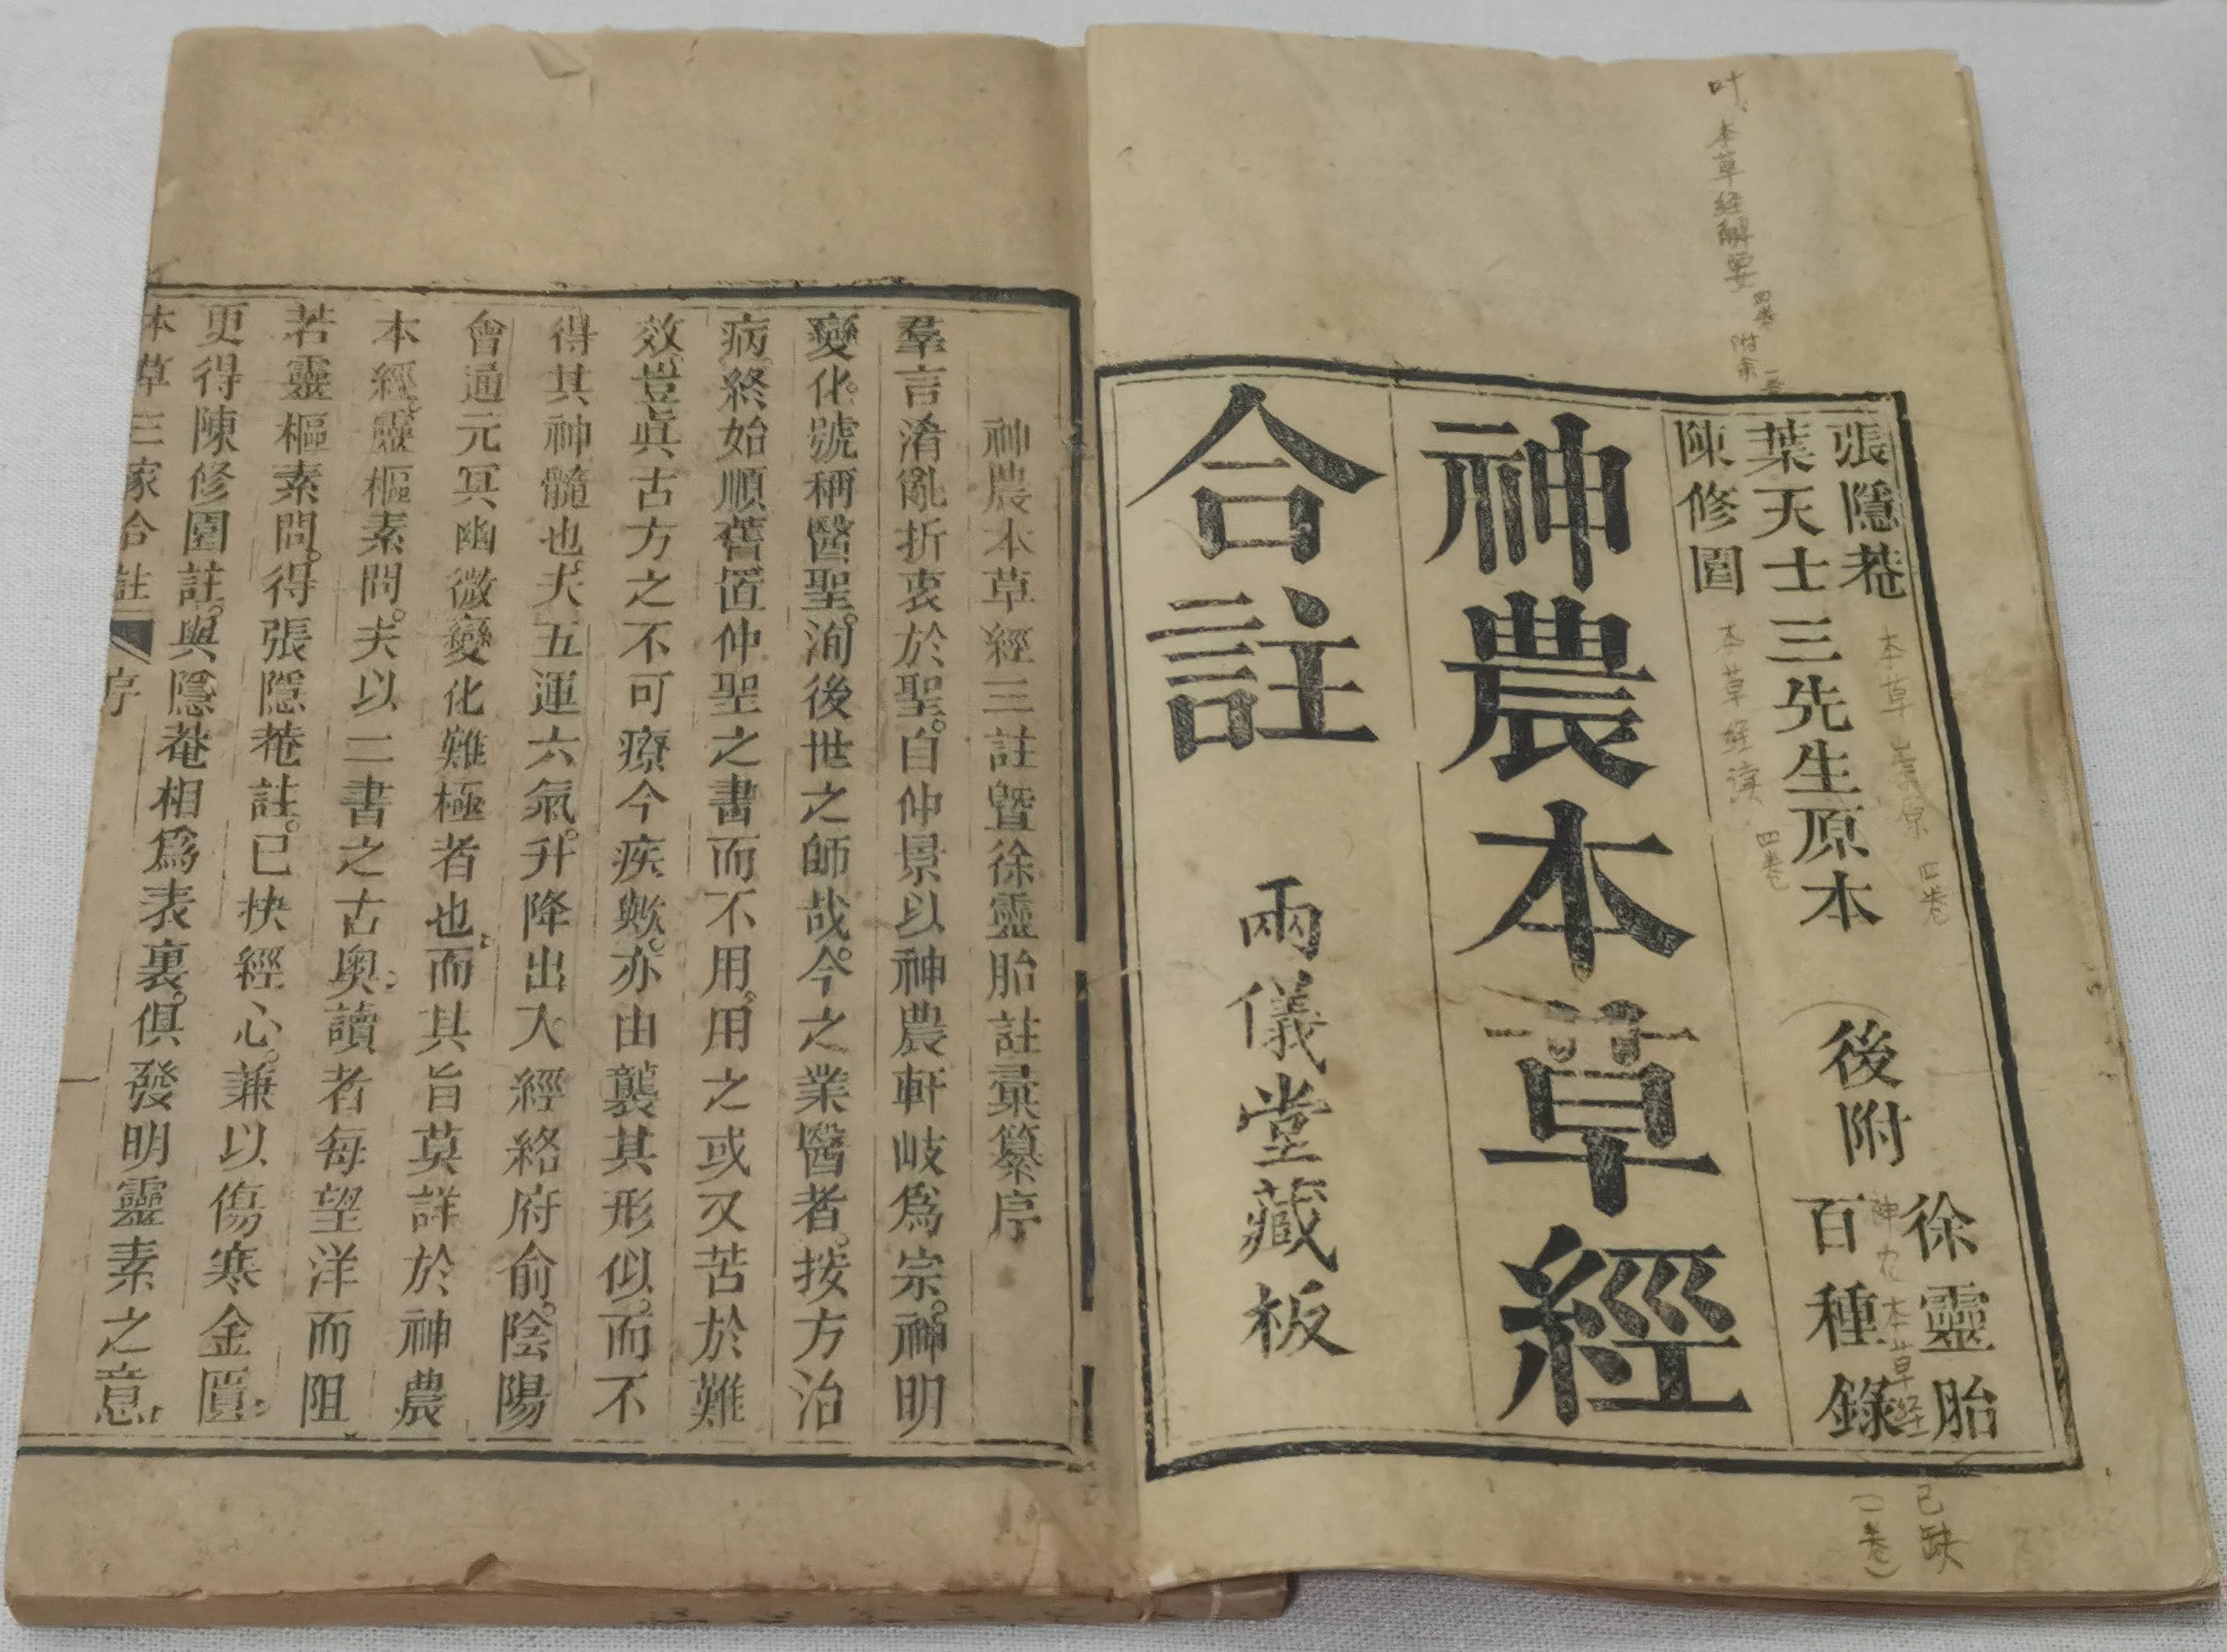 張隱菴
葉天士三先生原本
陳修園
後附
徐靈胎
百種錄
神農本草經
合註
兩儀堂藏板
叶
本草經解要
四卷
附余一卷
本草崇原
四卷
本草經讀
四卷
神农本草經
已缺
神農本草經三註曁徐靈胎註彙纂序
羣言淆亂折衷於聖。自仲景以神農軒岐爲宗。神明
變化。號稱醫聖。洵後世之師哉。今之業醫者。按方治
病。終始順舊置仲聖之書而不用。用之或又苦於難
效。豈眞古方之不可療今疾歟。亦由襲其形似。而不
得其神髓也。夫五運六氣。升降出入經絡府俞。陰陽
會通元冥幽微變化難極者也。而其旨莫詳於神農
本經。靈樞素問。夫以二書之古奧。讀者每望洋而阻
若靈樞素問。得張隱菴註。已抉經心。兼以傷寒金匱。
更得陳修園註。與隱菴相爲表裏。俱發明靈素之意。
本草三家合註
序